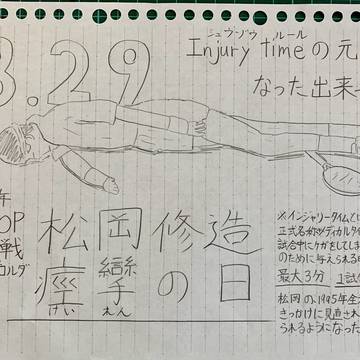 8.29
シュウゾウ ルール
Injury timeの元
なった出来
年
OP
戦
カルダ
松岡修造
痙攣の日
けいれん
※インジャリータイムと
正式名称メディカルタイ
試合中にケガをしてしま
のために与えられる
最大3分 1試
松岡の1995年全
きっかけに見直され
られるようになった